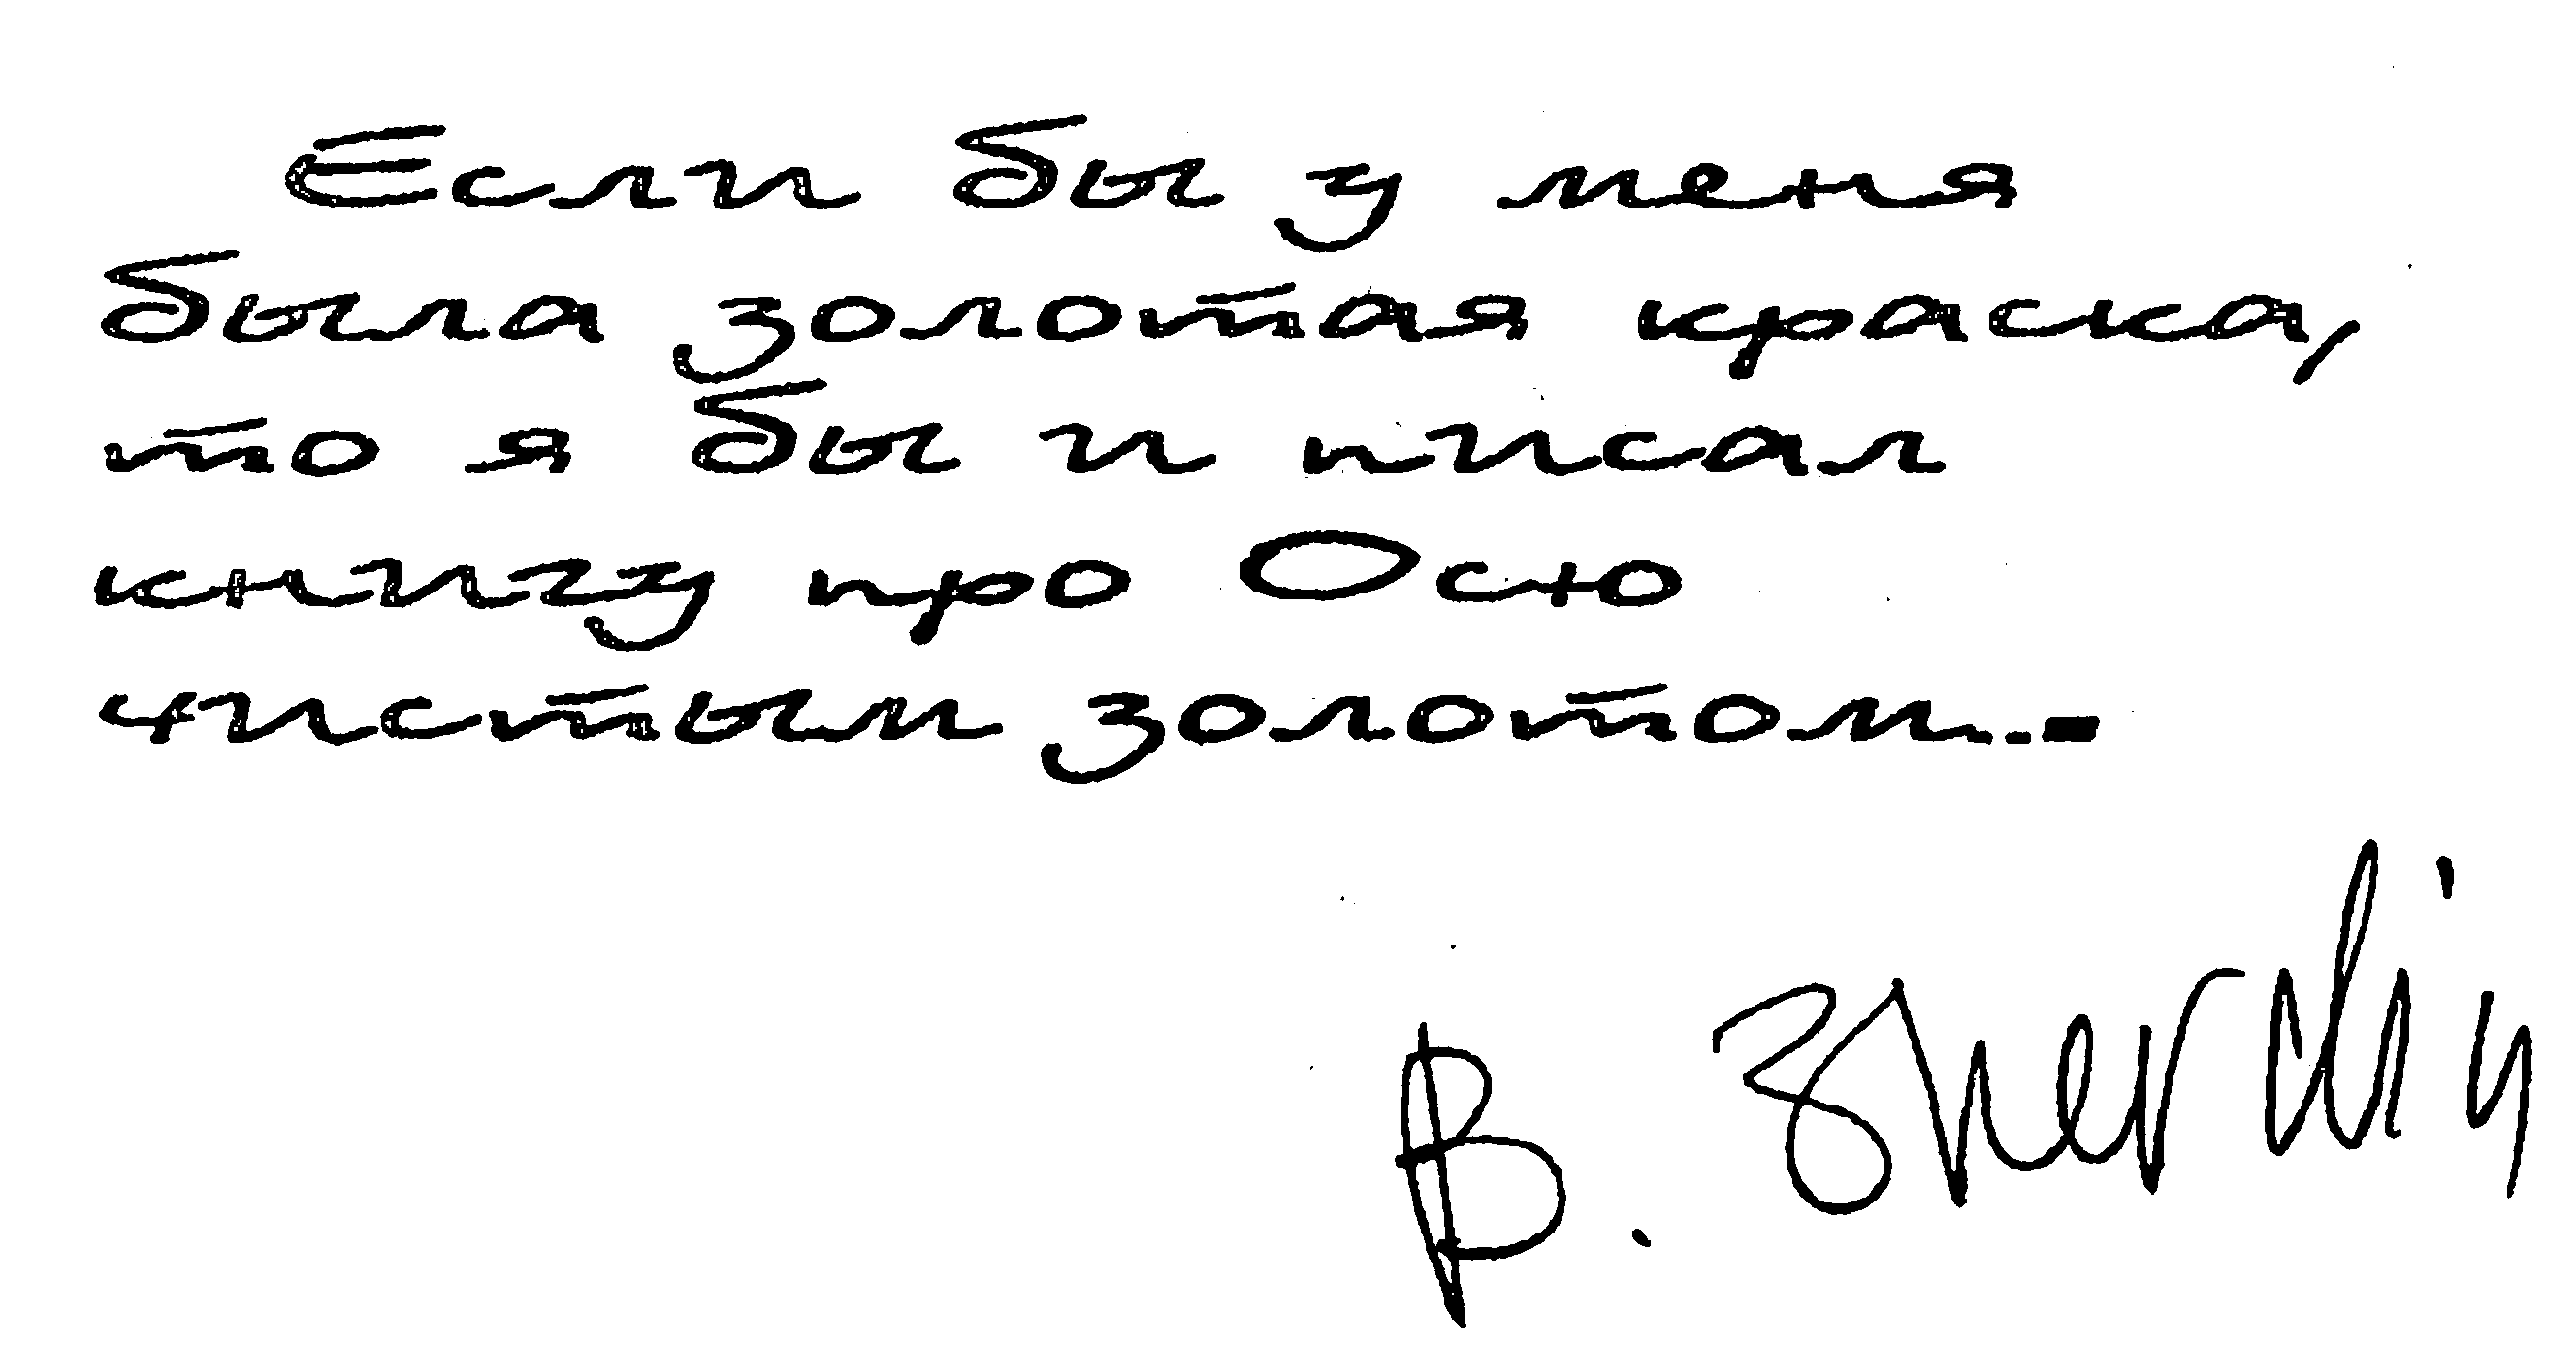 Если бы у меня
была золотая краска,
то я бы и писал
книгу про Осю
чистым золотом...
В.